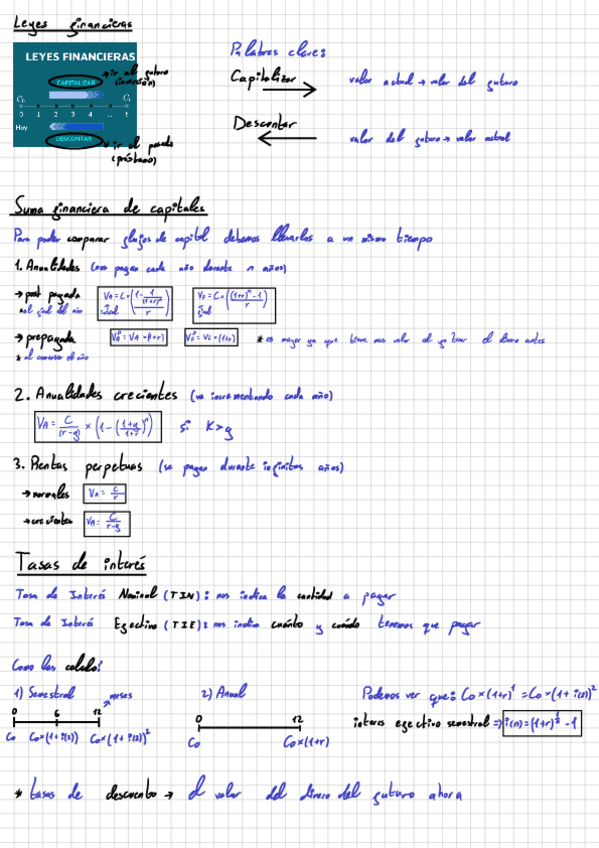 Leyes financieras
LEYES FINANCIERAS
CAPITALIZAR
→ ir al futuro (inversión)
C₀ Cₜ
0 1 2 3 4 ... t
Hoy
DESCONTAR
→ ir al pasado (préstamo)
Palabras clave:
Capitalizar → valor actual → valor del futuro
Descontar ← valor del futuro → valor actual
Suma financiera de capitales
Para poder comparar flujos de capital debemos llevarlos a un mismo tiempo
1. Anualidades (nos pagan cada año durante n años)
→ post pagada
* al final del año
→ prepagada
* al comenzar el año
* es mayor ya que tiene mas valor al yo tener el dinero antes
2. Anualidades crecientes (va incrementando cada año)
VA = C/(r-g) × (1-((1+g)/(1+r))ⁿ) si K>g
3. Rentas perpetuas (se pagan durante infinitos años)
→ normales VA = C/r
→ crecientes VA = C/(r-g)
Tasas de interés
Tasa de Interés Nominal (TIN): nos indica la cantidad a pagar
Tasa de Interés Efectivo (TIE): nos indica cuánto y cuándo tenemos que pagar
Como las calculo?
1) Semestral → meses
0 6 12
Co Co×(1+i(2)) Co×(1+i(2))²
2) Anual
0 12
Co Co×(1+r)
Podemos ver que: Co×(1+r)¹ = Co×(1+i(2))²
interes efectivo semestral => i(n) = (1+r)^½ - 1
* tasas de descuento → el valor del dinero del futuro ahora